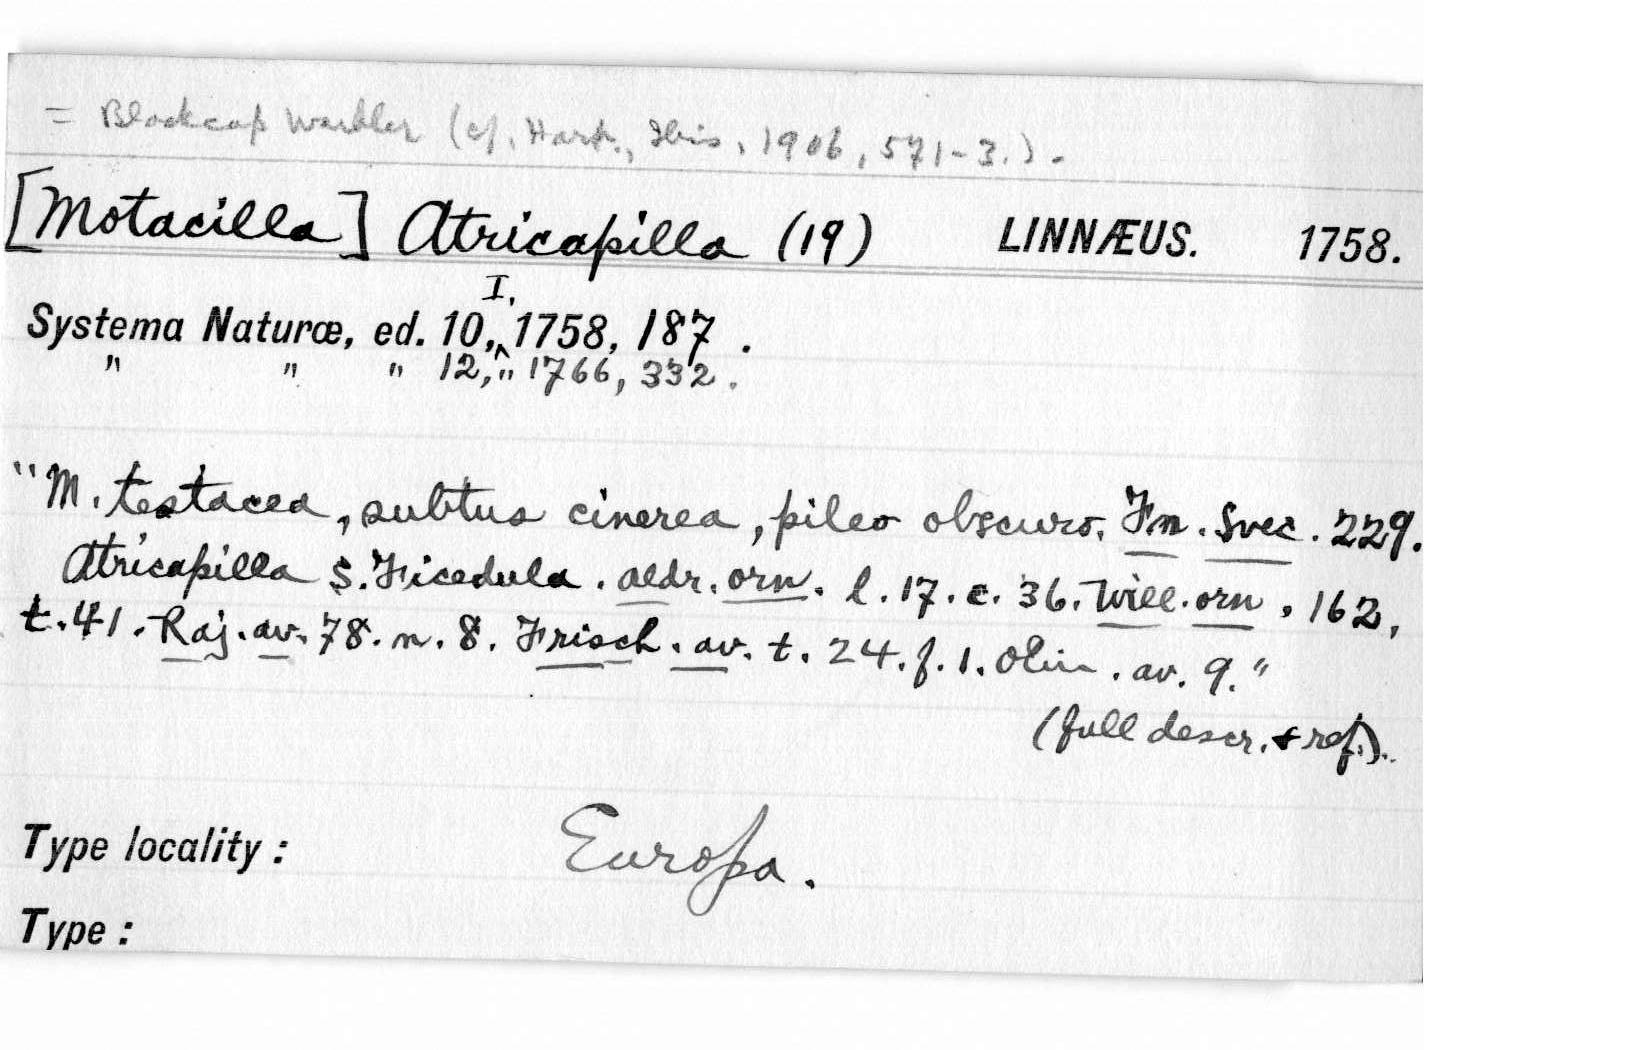 = Blackcap Warbler (cf. Hart., Ibis, 1906, 571-3.).
[Motacilla] Atricapilla (19) LINNÆUS. 1758.
I.
Systema Naturæ, ed. 10,‸ 1758, 187.
" " " 12, " 1766, 332.
"M. testacea, subtus cinerea, pileo obscuro. Fn. Svec. 229.
Atricapilla S. Ficedula. Aldr. orn. l. 17. c. 36. Will. orn. 162,
t. 41. Raj. av. 78. n. 8. Frisch. av. t. 24. f. 1. Olin. av. 9."
(full descr. & ref.).
Type locality: Europa.
Type: